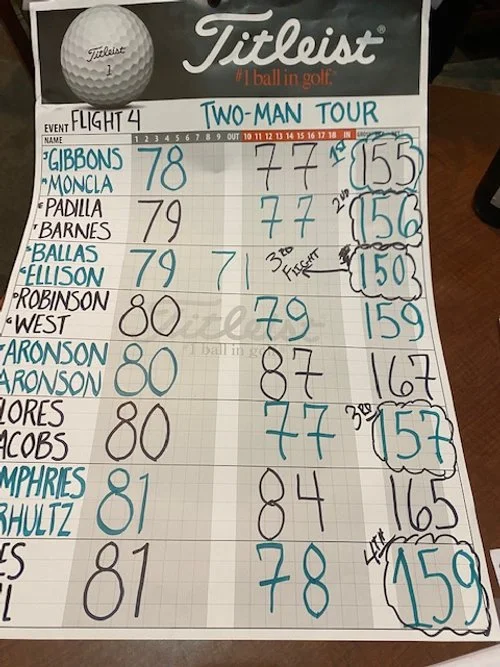 Titleist
1
Titleist®
#1 ball in golf.
EVENT FLIGHT 4 TWO-MAN TOUR
NAME 1 2 3 4 5 6 7 8 9 OUT 10 11 12 13 14 15 16 17 18 IN
GIBBONS
MONCLA 78 77 1ST 155
PADILLA
BARNES 79 77 2ND 156
BALLAS
ELLISON 79 71 3RD FLIGHT 150
ROBINSON
WEST 80 79 159
Titleist
#1 ball in golf
ARONSON
ARONSON 80 87 167
LORES
ACOBS 80 77 3RD 157
MPHRIES
RHULTZ 81 84 165
ES
L 81 78 4TH 159